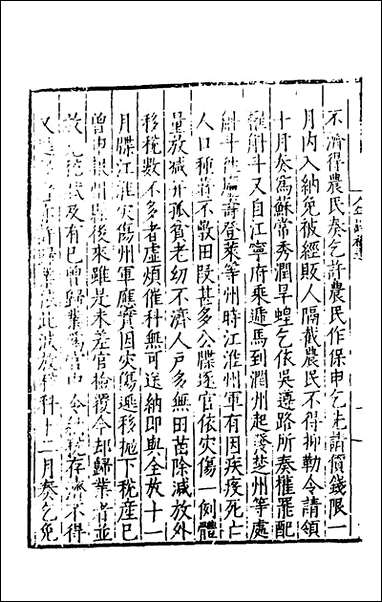 不濟得農民奏乞許農民作保申乞先請價錢限一
月内入納免被經販人隔截農民不得抑勒令請領
十月奏爲蘇常秀潤旱蝗乞依吳遵路所奏權罷配
糴斛斗又自江寧府乘遞馬到潤州起發楚州等處
斛斗往廬壽登萊等州時江淮州軍有因疾疫死亡
人口種蒔不敷田段甚多公牒逐官依灾傷一例體
量放減并孤貧老幼不濟人户多無田苗除減放外
移税數不多者虚煩催科無可送納即與全放十一
月牒江淮灾傷州軍應實因灾傷逃移抛下税産已
曾申報州縣後來雖是未差官檢覆今却歸業者並
及有已曾歸業
此減放催科十二月奏乞免